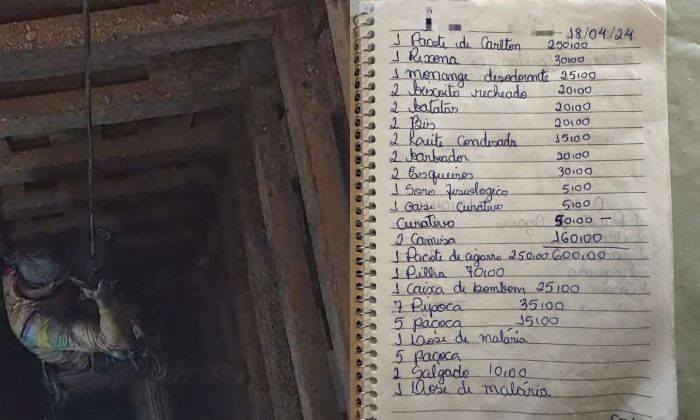 18/04/24
1 Pacote de Carlton 250,00
1 Rexona 30,00
1 monange desodorante 25,00
2 biscoito recheado 20,00
2 batatas 20,00
2 Bis 20,00
2 Leite Condesado 15,00
2 barbeador 20,00
2 Esqueiros 30,00
1 Soro fisiologico 5,00
1 Curativo 5,00
Curativo 50,00
2 Camisa 160,00
1 Pacote de cigarro 250,00 600,00
1 Pilha 70,00
1 Caixa de bombom 25,00
7 Pipoca 35,00
5 paçoca 15,00
1 Dose de malária
5 paçoca
2 Salgado 10,00
1 Dose de malária